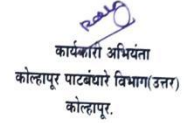 कार्यकारी अभियंता
कोल्हापूर पाटबंधारे विभाग(उत्तर)
कोल्हापूर.